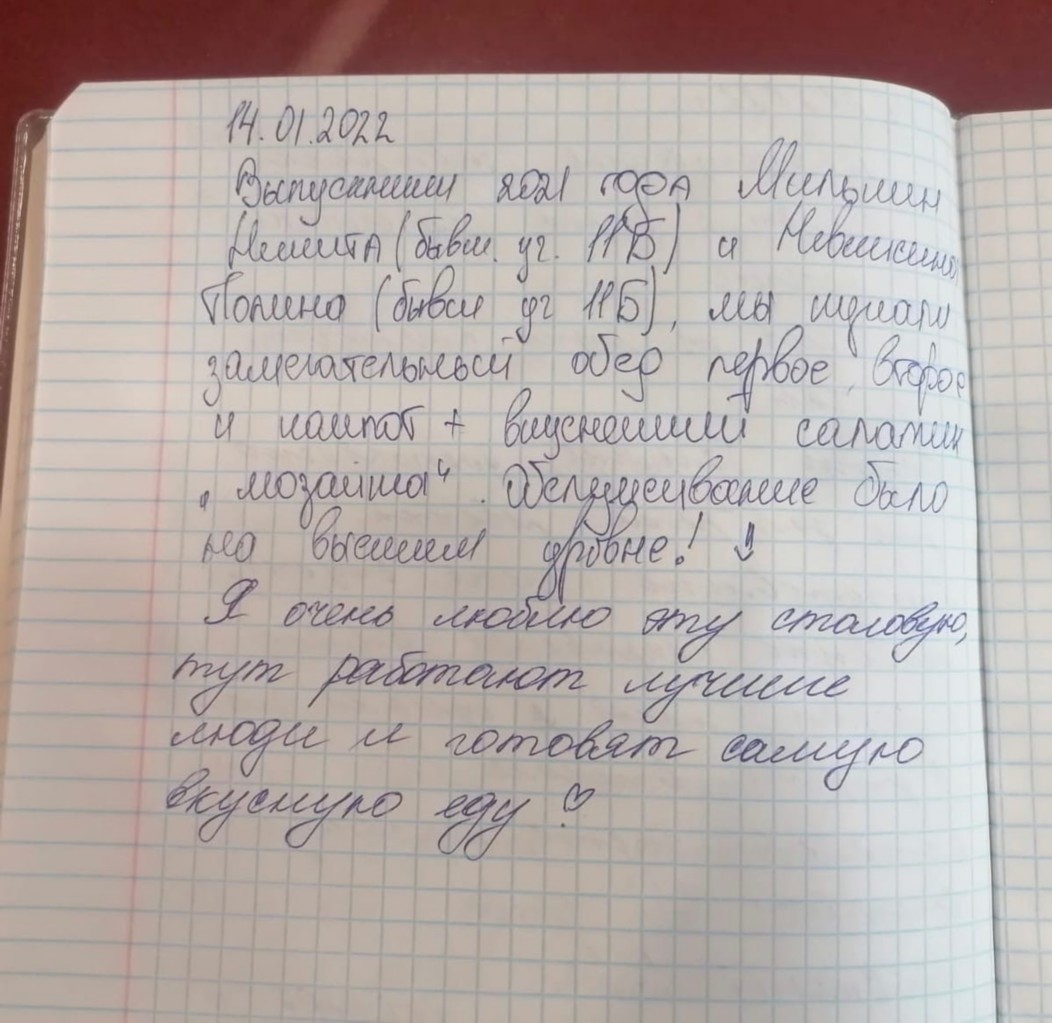 14.01.2022
Выпускники 2021 года
Никита (бывш. уч. 11"Б") и
Полина (бывш уч 11Б), мы кушали
замечательный обед первое, второе
и компот + вкуснейший салатик
„мозайка“. Обслуживание было
на высшем уровне!
Я очень люблю эту столовую,
тут работают лучшие
люди и готовят самую
вкусную еду ♡